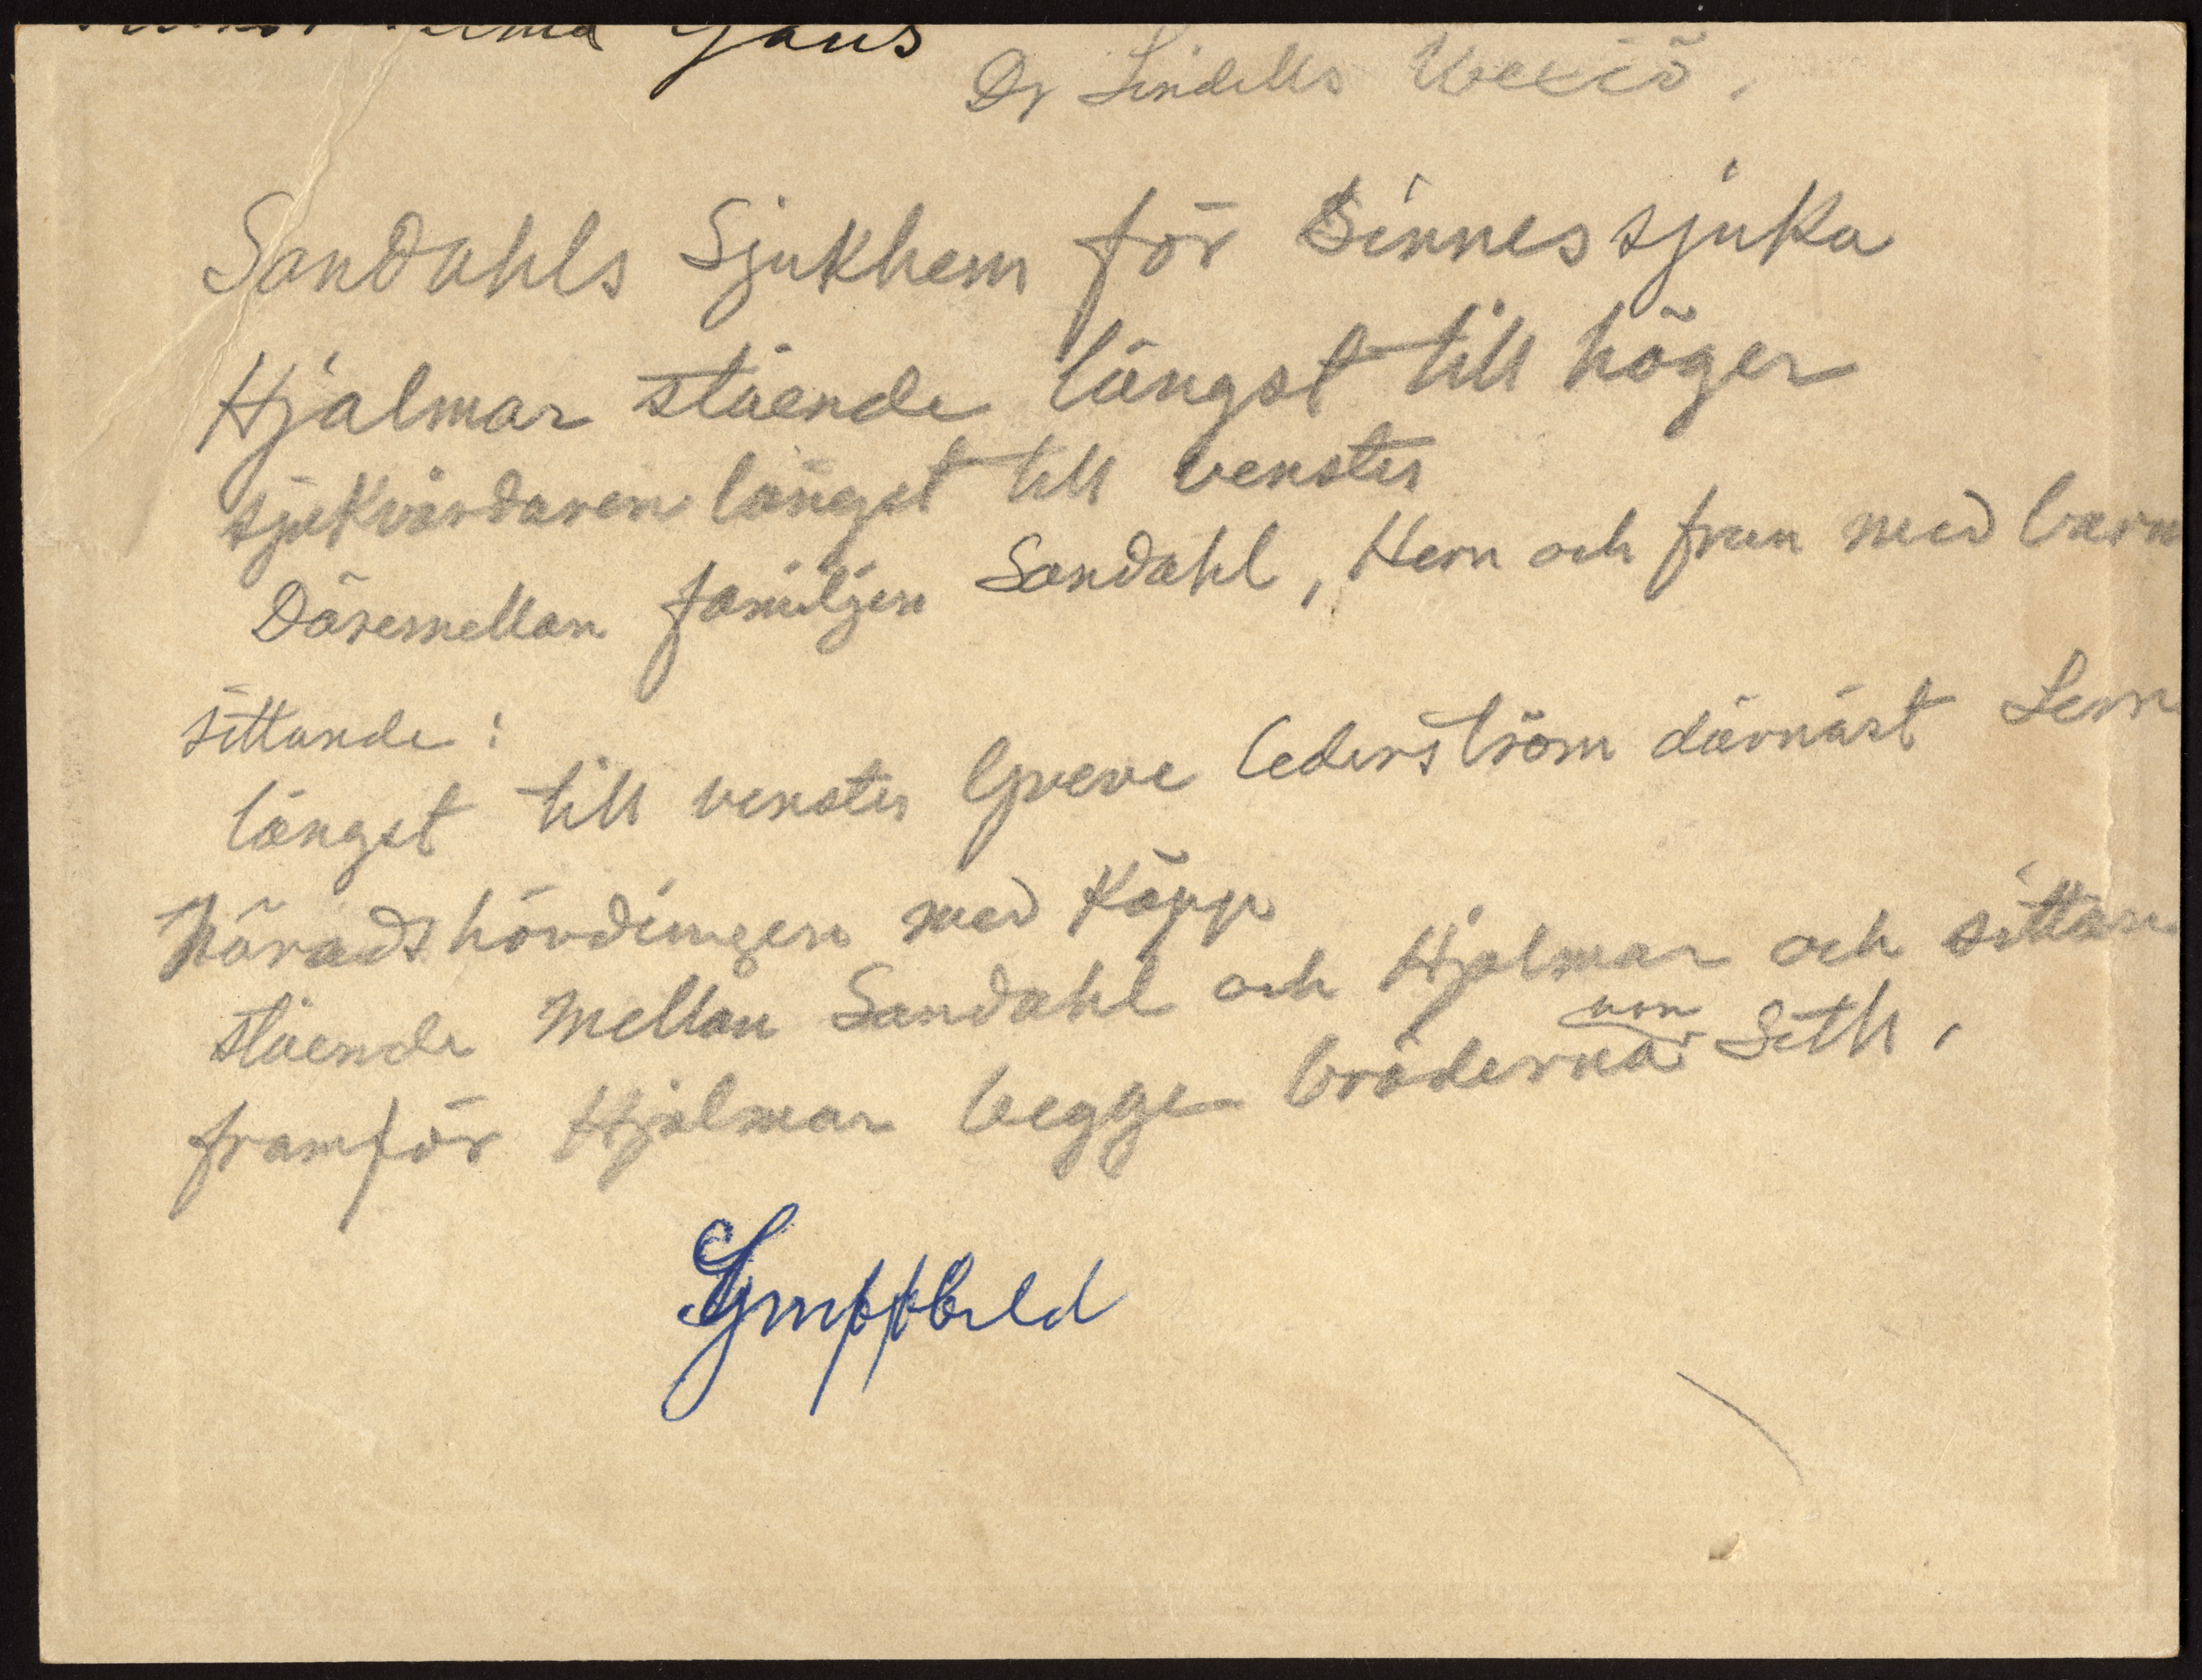 Gaus
Dr Lindells Wexiö.
Sandahls Sjukhem för Sinnessjuka
Hjalmar stående längst till höger
sjukvårdaren längst till venster
Däremellan familjen Sandahl, Herr och frun med barn
sittande:
längst till venster Greve Cederström därnäst
Häradshövdingen med Käpp
stående mellan Sandahl och Hjalmar och sittan
framför Hjalmar begge bröderna von Seth.
Gruppbild